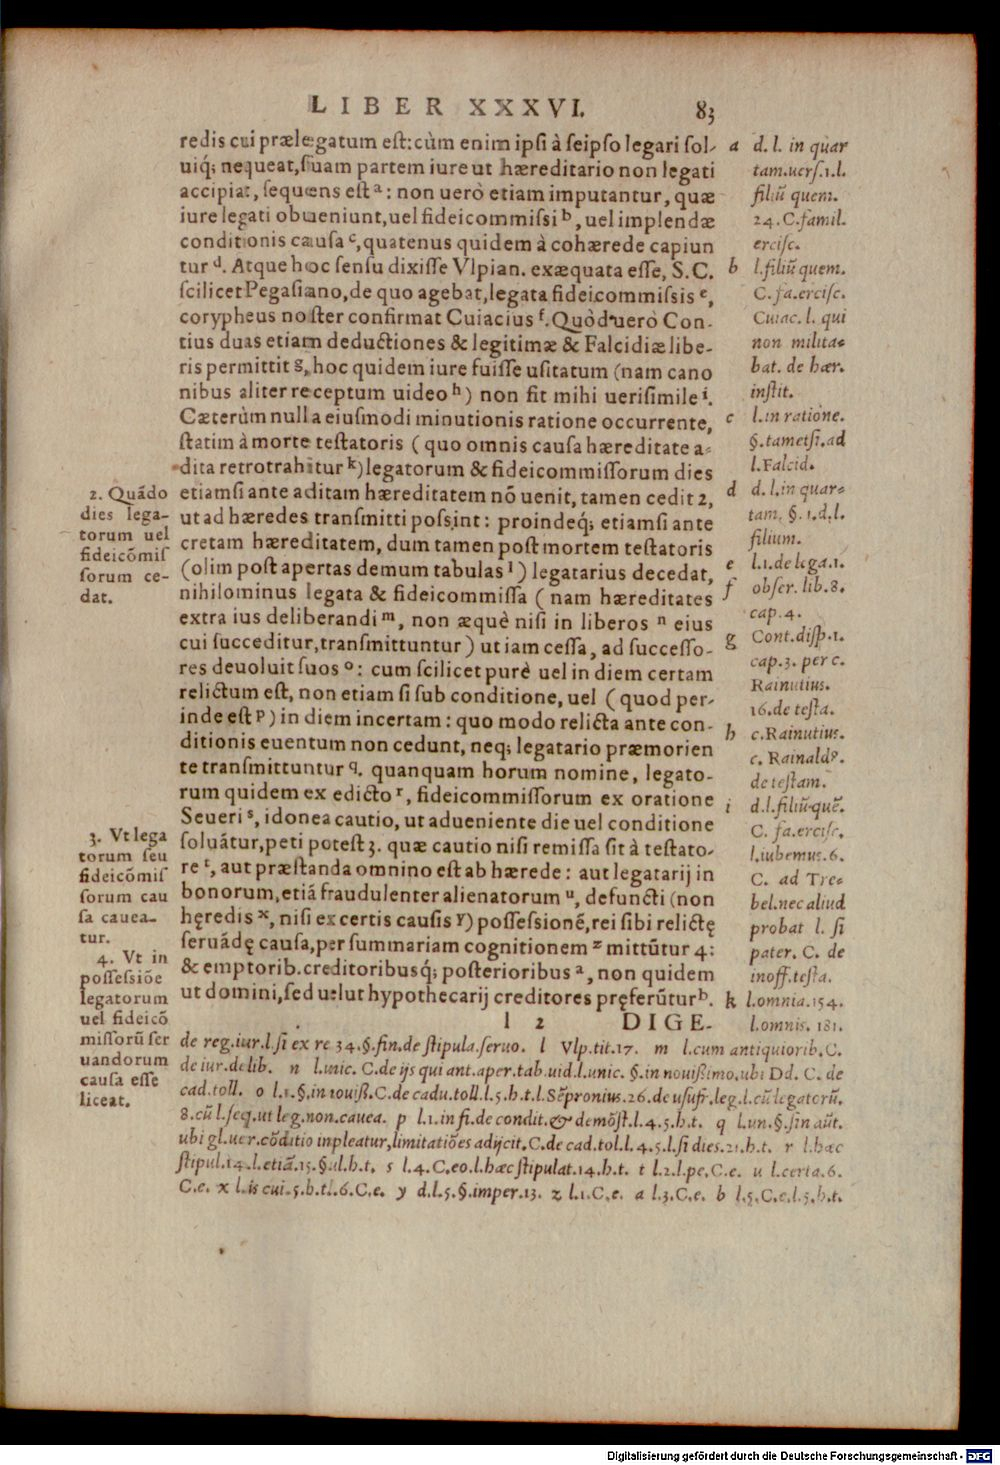 LIBER XXXVI. 83
redis cui prælegatum est: cùm enim ipsi à seipso legari sol-
uiq; nequeat, suam partem iure ut hæreditario non legati
accipiat, sequens est ª: non uerò etiam imputantur, quæ
iure legati obueniunt, uel fideicommissi b, uel implendæ
conditionis causa c, quatenus quidem à cohærede capiun
tur d. Atque hoc sensu dixisse Vlpian. exæquata esse, S.C.
scilicet Pegasiano, de quo agebat, legata fideicommissis e,
corypheus noster confirmat Cuiacius f. Quòd uerò Con-
tius duas etiam deductiones & legitimæ & Falcidiæ libe-
ris permittit g, hoc quidem iure fuisse usitatum (nam cano
nibus aliter receptum uideo h) non fit mihi uerisimile i.
Cæterùm nulla eiusmodi minutionis ratione occurrente,
statim à morte testatoris (quo omnis causa hæreditate a-
dita retrotrahitur k) legatorum & fideicommissorum dies
etiamsi ante aditam hæreditatem nõ uenit, tamen cedit 2,
ut ad hæredes transmitti possint: proindeq; etiamsi ante
cretam hæreditatem, dum tamen post mortem testatoris
(olim post apertas demum tabulas l) legatarius decedat,
nihilominus legata & fideicommissa (nam hæreditates
extra ius deliberandi m, non æquè nisi in liberos n eius
cui succeditur, transmittuntur) ut iam cessa, ad successo-
res deuoluit suos o: cum scilicet purè uel in diem certam
relictum est, non etiam si sub conditione, uel (quod per-
inde est p) in diem incertam: quo modo relicta ante con-
ditionis euentum non cedunt, neq; legatario præmorien
te transmittuntur q. quanquam horum nomine, legato-
rum quidem ex edicto r, fideicommissorum ex oratione
Seueri s, idonea cautio, ut adueniente die uel conditione
soluátur, peti potest 3. quæ cautio nisi remissa sit à testato-
re t, aut præstanda omnino est ab hærede: aut legatarij in
bonorum, etiá fraudulenter alienatorum u, defuncti (non
hęredis x, nisi ex certis causis y) possessionẽ, rei sibi relictę
seruádę causa, per summariam cognitionem z mittũtur 4:
& emptorib. creditoribusq; posterioribus a, non quidem
ut domini, sed uelut hypothecarij creditores pręferũtur b.
l 2 DIGE-
2. Quãdo
dies lega-
torum uel
fideicõmis
sorum ce-
dat.
3. Vt lega
torum seu
fideicõmis
sorum cau
sa cauea-
tur.
4. Vt in
possessiõe
legatorum
uel fideicõ
missorũ ser
uandorum
causa esse
liceat.
a d. l. in quar
tam. uers. 1. l.
filiũ quem.
24. C. famil.
ercisc.
b l. filiũ quem.
C. fa. ercisc.
Cuiac. l. qui
non milita-
bat. de hær.
instit.
c l. in ratione.
§. tametsi. ad
l. Falcid.
d d. l. in quar-
tam. §. 1. d. l.
filium.
e l. 1. de lega. 1.
f obser. lib. 8.
cap. 4.
g Cont. disp. 1.
cap. 3. per c.
Rainutius.
16. de testa.
h c. Rainutius.
c. Rainald9.
de testam.
i d. l. filiũ quẽ.
C. fa. ercisc.
l. iubemus. 6.
C. ad Tre-
bel. nec aliud
probat l. si
pater. C. de
inoff. testa.
k l. omnia. 154.
l. omnis. 181.
de reg. iur. l. si ex re 34. §. fin. de stipula. seruo. l Vlp. tit. 17. m l. cum antiquiorib. C.
de iur. delib. n l. unic. C. de ijs qui ant. aper. tab. uid. l. unic. §. in nouißimo. ubi Dd. C. de
cad. toll. o l. 1. §. in nouiß. C. de cadu. toll. l. 5. h. t. l. Sẽpronius. 26. de usufr. leg. l. cũ legatorũ.
8. cũ l. seq. ut leg. non. cauea. p l. 1. in fi. de condit. & demõst. l. 4. 5. h. t. q l. un. §. sin aũt.
ubi gl. uer. cõditio inpleatur, limitatiões adijcit. C. de cad. tol. l. 4. 5. l. si dies. 21. h. t. r l. hæc
stipul. 14. l. etiã. 15. §. ul. h. t. s l. 4. C. eo. l. hæc stipulat. 14. h. t. t l. 2. l. pe. C. e. u l. certa. 6.
C. e. x l. is cui. 5. h. t. l. 6. C. e. y d. l. 5. §. imper. 13. z l. 1. C. e. a l. 3. C. e. b l. 5. C. e. l. 5. h. t.
Digitalisierung gefördert durch die Deutsche Forschungsgemeinschaft - DFG